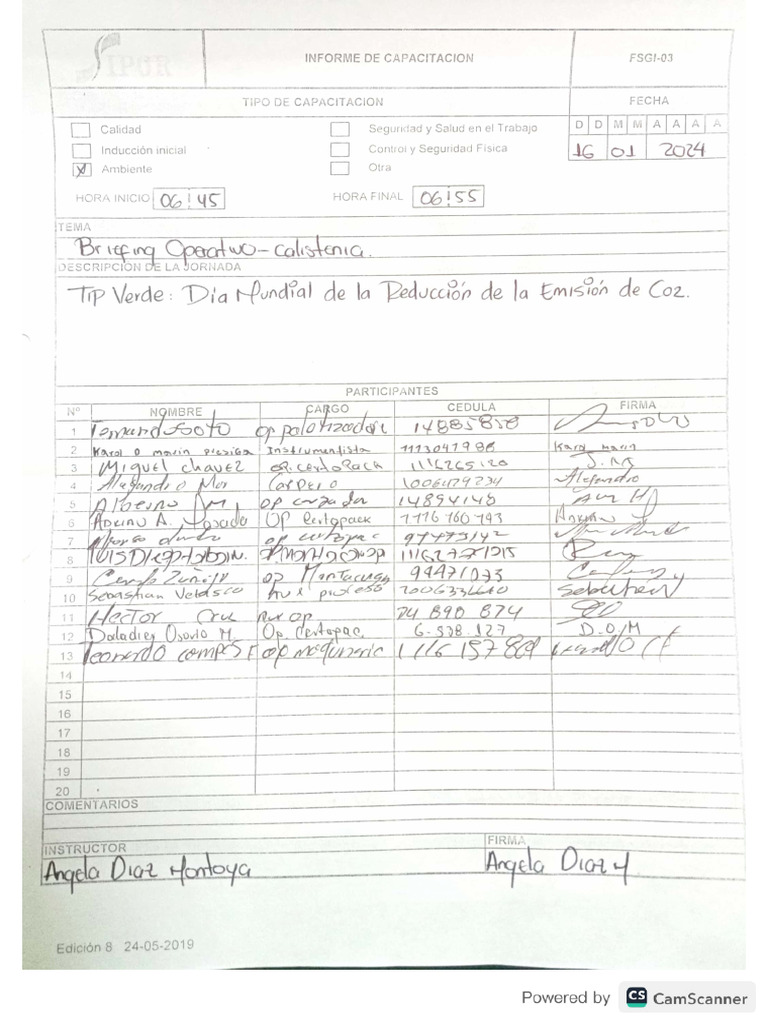 SIPUR
INFORME DE CAPACITACION
FSGI-03
TIPO DE CAPACITACION
FECHA
Calidad
Seguridad y Salud en el Trabajo
D D M M A A A A
Inducción inicial
Control y Seguridad Física
16 01 2024
Ambiente
Otra
HORA INICIO 06:45
HORA FINAL 06:55
TEMA
Briefing Operativo - Calistenia.
DESCRIPCION DE LA JORNADA
Tip Verde: Día Mundial de la Reducción de la Emisión de Co2.
PARTICIPANTES
Nº NOMBRE CARGO CEDULA FIRMA
1 Fernando Soto op paletizadora 14885858
2 Karol D marin Instrumentista Karol marin
3 Miguel Chavez op. certopack 1116265120
4 Alejandro Mor 1006179234 Alejandro
5 op cargador 14894148
6 Adriano A. Posada OP Certopack 1116160193
7 op certopac
8
9 Carlos Zuñiga op Montacarga 94471073
10 Sebastian Velasco Aux proceso Sebastian V
11 Hector Cruz Aux op 14 890 874
12 Daladier Osorio M. Op. Certopac. 6.538.127 D.O/M
13 Leonardo campos op maquinaria
14
15
16
17
18
19
20
COMENTARIOS
INSTRUCTOR
FIRMA
Angela Diaz Montoya
Angela Diaz M
Edición 8 24-05-2019
Powered by CS CamScanner